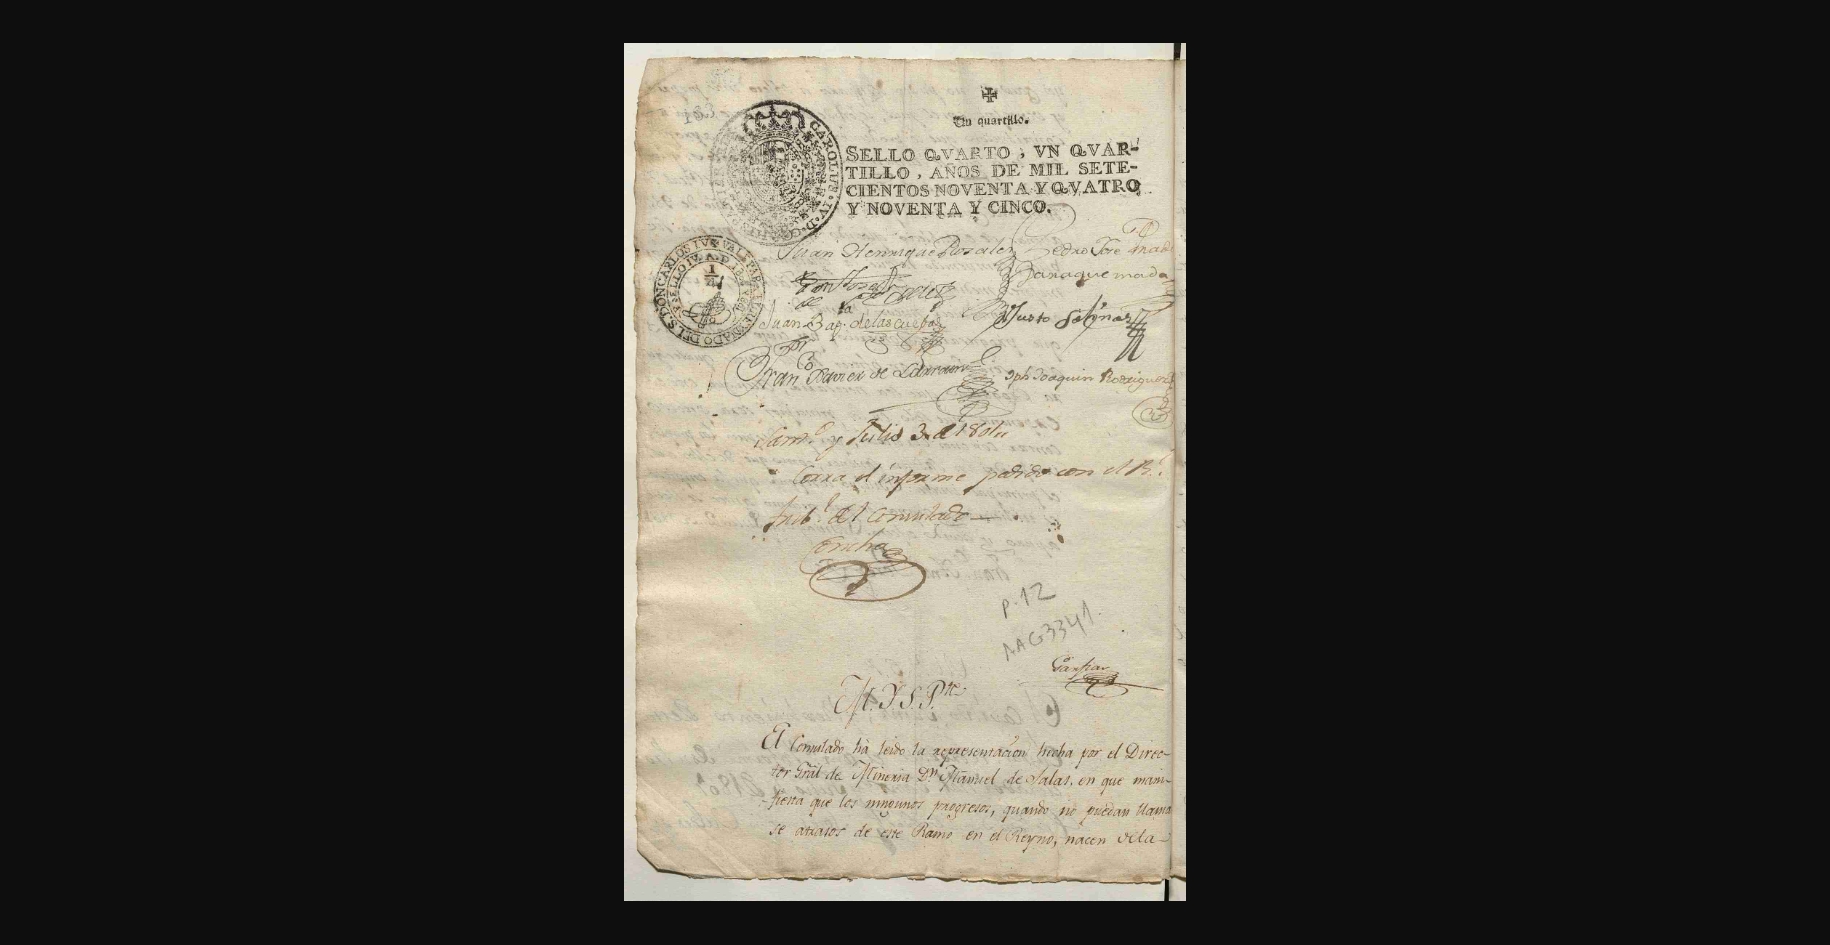 Un quartillo.
SELLO QVARTO, VN QVAR-
TILLO, AÑOS DE MIL SETE-
CIENTOS NOVENTA Y QVATRO
Y NOVENTA Y CINCO.
CAROLUS IV D G
DEL S. DON CARLOS IV VALE PARA EL REYNADO
Juan Henrique Rosales Pedro José
Juan Bap.ta de las cuebas Justo Salinas
Fran.co Xavier de Larrain Jph Joaquin Rodriguez
y Julio 3 de 1801
Corra el informe pedido con el R.l
Trib.l del Consulado
Concha
p. 12
M. Y. S. P.te
El Consulado ha leido la representacion hecha por el Direc-
tor Gral de Mineria Dn Manuel de Salas, en que mani-
fiesta que los ningunos progresos, quando no puedan llamar
se atrasos de este Ramo en el Reyno, nacen de la